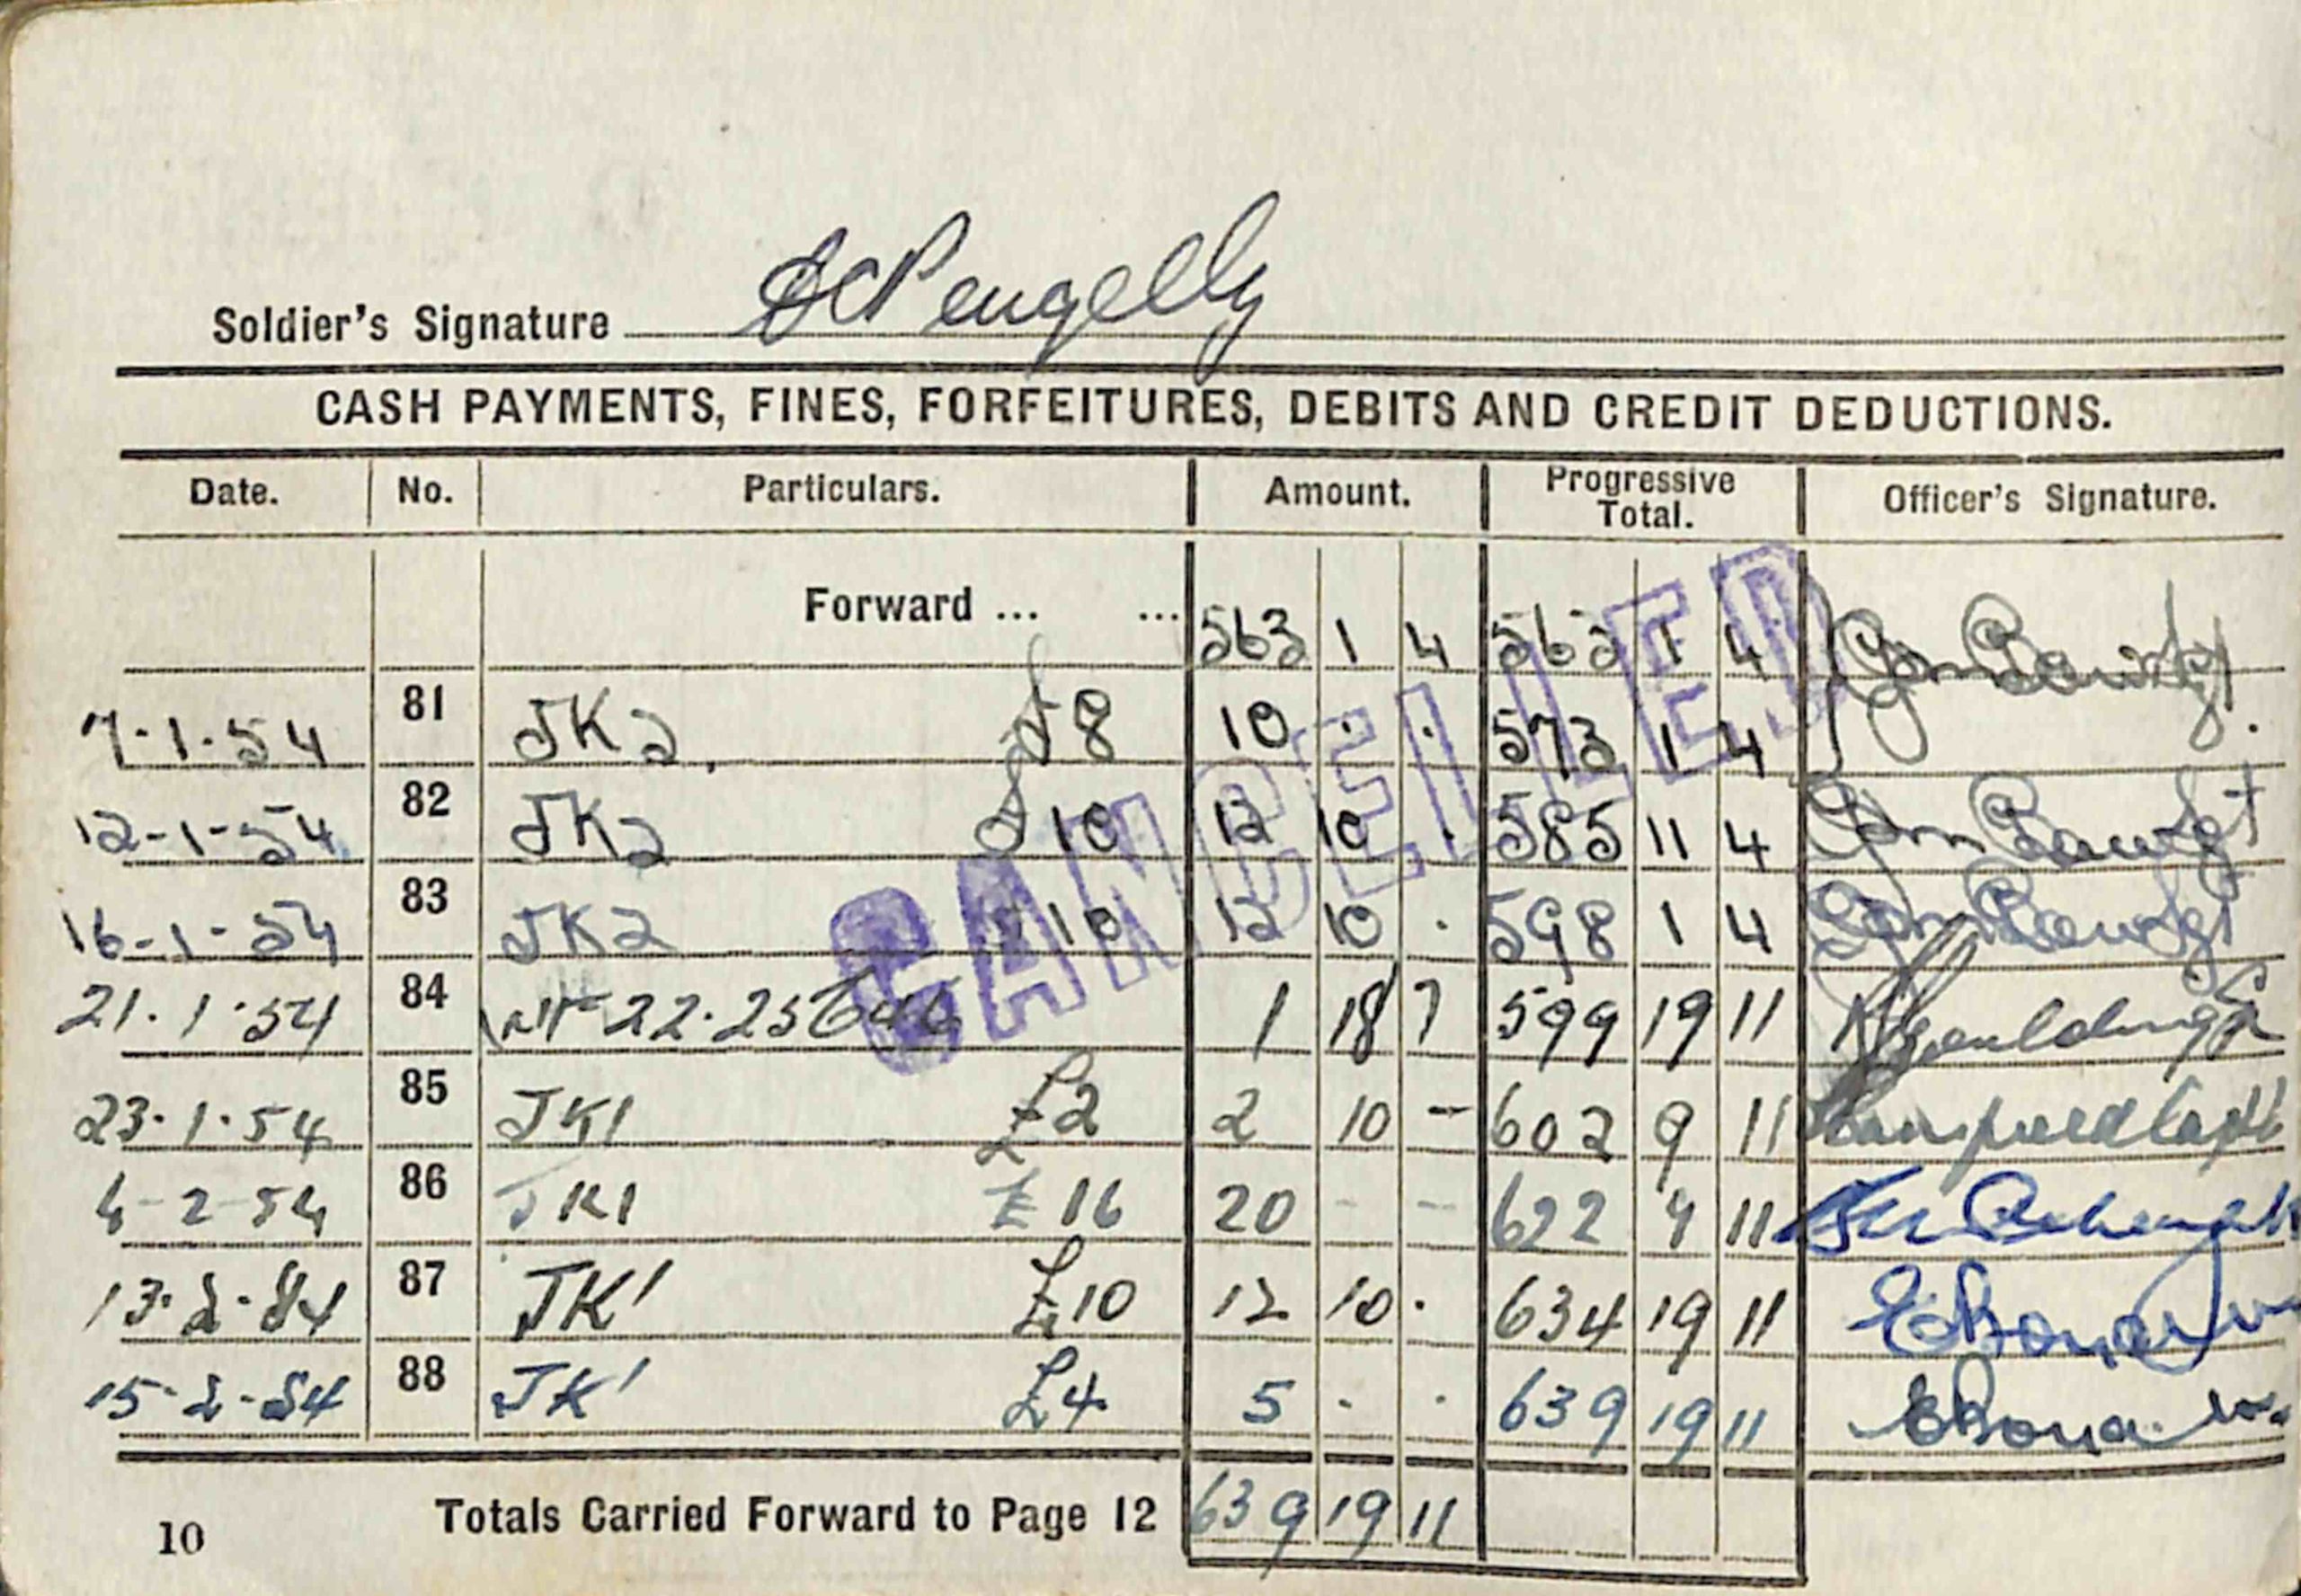 Soldier's Signature Pengelly
CASH PAYMENTS, FINES, FORFEITURES, DEBITS AND CREDIT DEDUCTIONS.
Date. No. Particulars. Amount. Progressive Total. Officer's Signature.
Forward ... ... 563 1 4 563 1 4
7.1.54 81 JK2. £8 10 . . 573 1 4
12-1-54 82 JK2 £10 12 10 . 585 11 4
16-1-54 83 JK2 £10 12 10 . 598 1 4
21.1.54 84 1 18 7 599 19 11
23.1.54 85 JK1 £2 2 10 - 602 9 11
6-2-54 86 JK1 £16 20 - - 622 9 11
13.2.54 87 JK1 £10 12 10 . 634 19 11
15.2.54 88 JK1 £4 5 . . 639 19 11
CANCELLED
Totals Carried Forward to Page 12 639 19 11
10